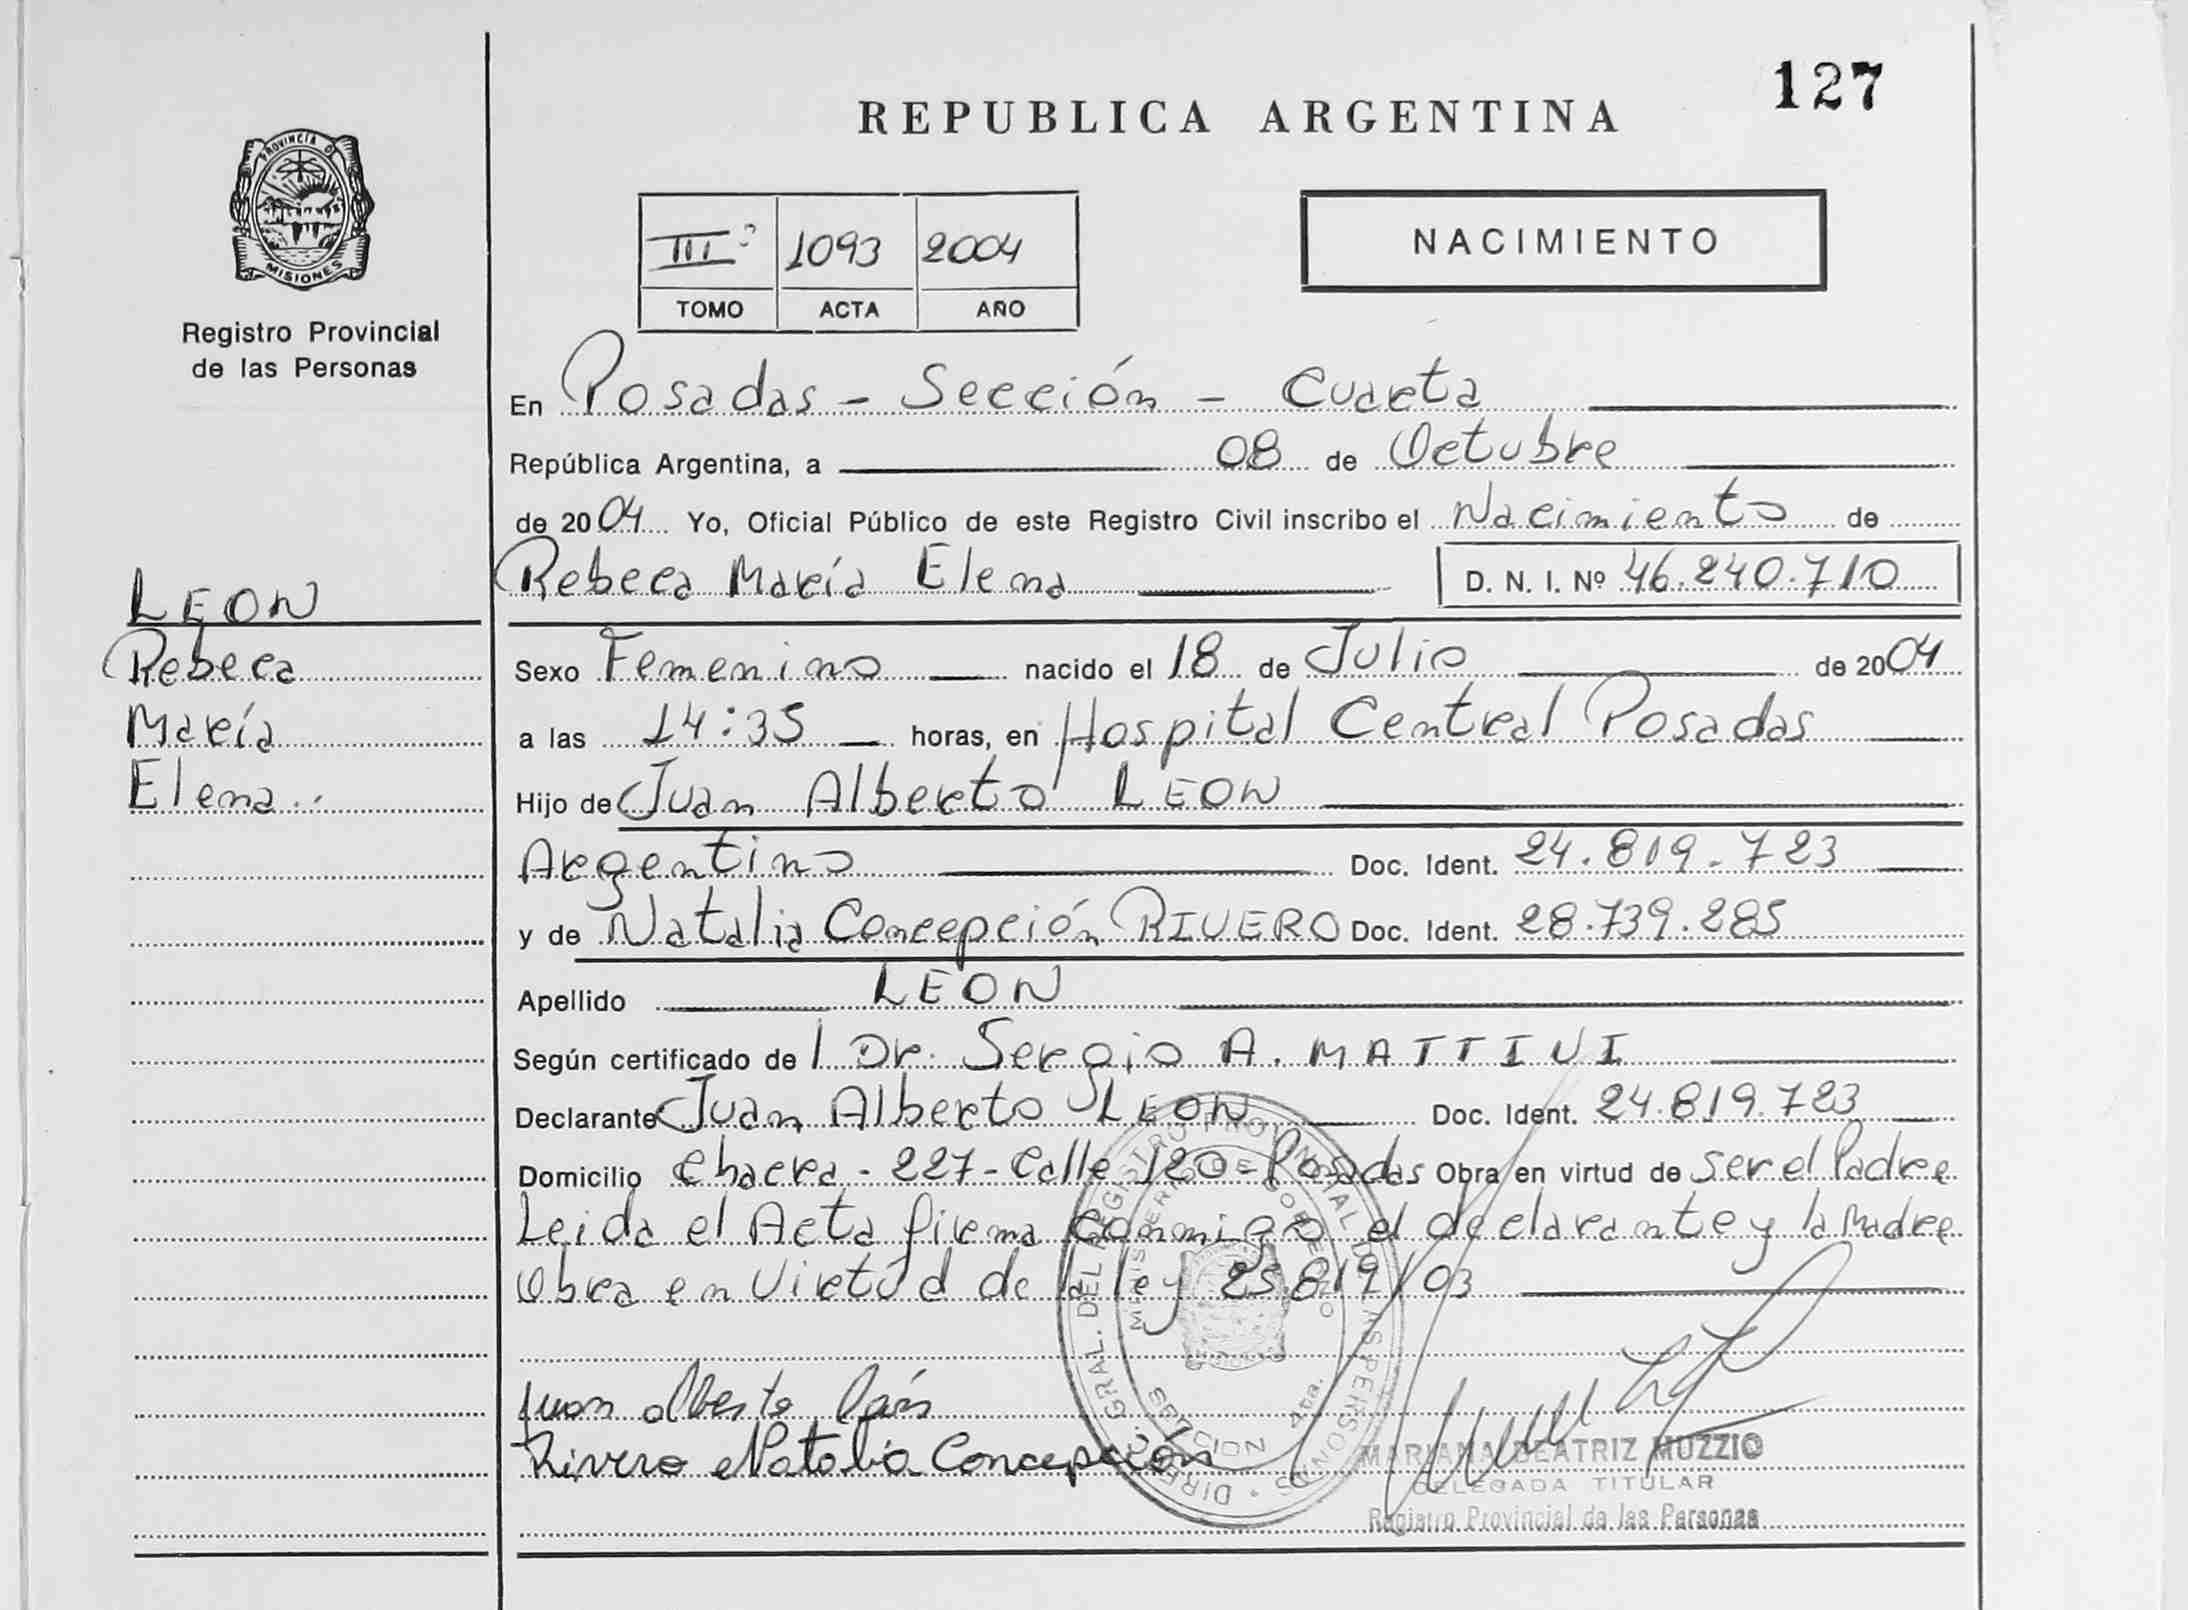 127
REPUBLICA ARGENTINA
PROVINCIA D
MISIONES
Registro Provincial
de las Personas
NACIMIENTO
III° 1093 2004
TOMO ACTA AÑO
En Posadas - Sección - Cuarta
República Argentina, a 08 de Octubre
de 2004 Yo, Oficial Público de este Registro Civil inscribo el Nacimiento de
Rebeca María Elena D. N. I. Nº 46.240.710
LEON
Rebeca
María
Elena..
Sexo Femenino nacido el 18 de Julio de 2004
a las 14:35 horas, en Hospital Central Posadas
Hijo de Juan Alberto LEON
Argentino Doc. Ident. 24.819.723
y de Natalia Concepción RIVERO Doc. Ident. 28.739.285
Apellido LEON
Según certificado de Dr. Sergio A. MATTIVI
Declarante Juan Alberto LEON Doc. Ident. 24.819.723
Domicilio Chacra - 227 - Calle 120 - Posadas Obra en virtud de ser el Padre
Leida el Acta firma conmigo el declarante y la Madre
Obra en Virtud de la ley 25.819/03
Juan Alberto
Rivero Natalia Concepción
MARIANA BEATRIZ MUZZIO
DELEGADA TITULAR
Registro Provincial de las Personas
GRAL. DEL REGISTRO PROVINCIAL DE LAS PERSONAS